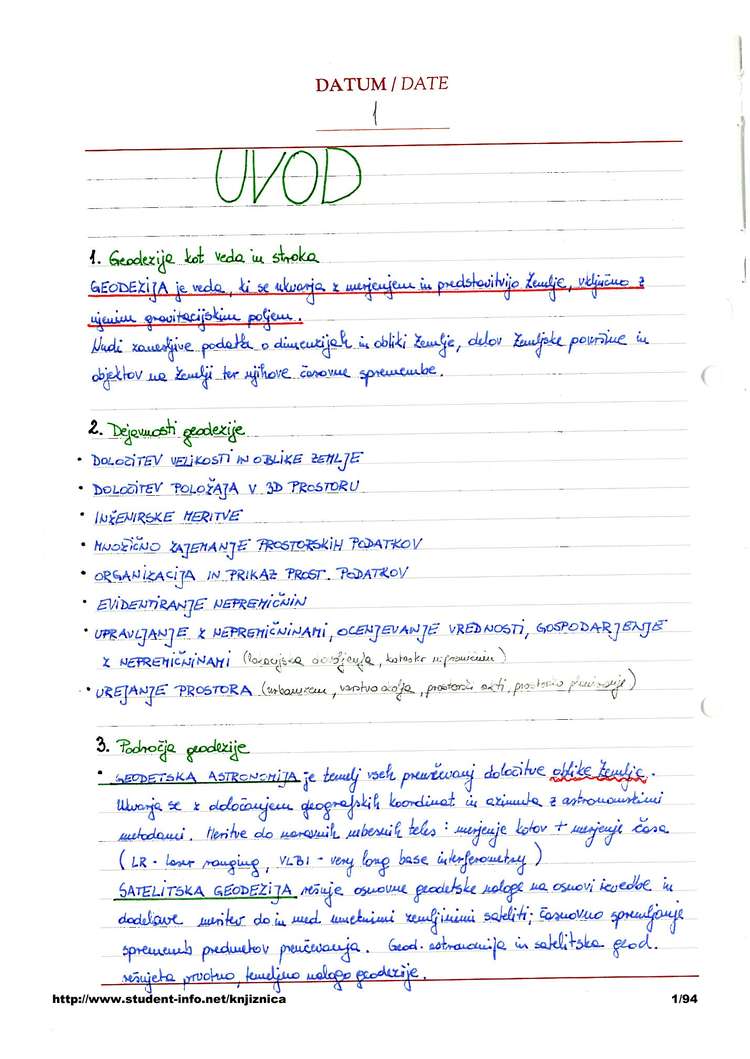 DATUM / DATE
1
UVOD
1. Geodezija kot veda in stroka
GEODEZIJA je veda, ki se ukvarja z merjenjem in predstavitvijo Zemlje, vključno z
njenim gravitacijskim poljem.
Nudi zanesljive podatke o dimenzijah in obliki Zemlje, delov Zemljske površine in
objektov na Zemlji ter njihove časovne spremembe.
2. Dejavnosti geodezije
• DOLOČITEV VELIKOSTI IN OBLIKE ZEMLJE
• DOLOČITEV POLOŽAJA V 3D PROSTORU
• INŽENIRSKE MERITVE
• MNOŽIČNO ZAJEMANJE PROSTORSKIH PODATKOV
• ORGANIZACIJA IN PRIKAZ PROST. PODATKOV
• EVIDENTIRANJE NEPREMIČNIN
• UPRAVLJANJE Z NEPREMIČNINAMI, OCENJEVANJE VREDNOSTI, GOSPODARJENJE
Z NEPREMIČNINAMI (lokacijska dovoljenja, kataster nepremičnin)
• UREJANJE PROSTORA (urbanizem, varstvo okolja, prostorski akti, prostorsko planiranje)
3. Področja geodezije
• GEODETSKA ASTRONOMIJA je temelj vseh preučevanj določitve oblike Zemlje.
Ukvarja se z določanjem geografskih koordinat in azimuta z astronomskimi
metodami. Meritve do naravnih nebesnih teles: merjenje kotov + merjenje časa
(LR - Laser ranging, VLBI - very long base interferometry)
SATELITSKA GEODEZIJA rešuje osnovne geodetske naloge na osnovi izvedbe in
dodelave meritev do in med umetnimi zemljinimi sateliti; časovno spremljanje
sprememb predmetov preučevanja. Geod. astronomija in satelitska geod.
rešujeta prvotno, temeljno nalogo geodezije.
http://www.student-info.net/knjiznica
1/94